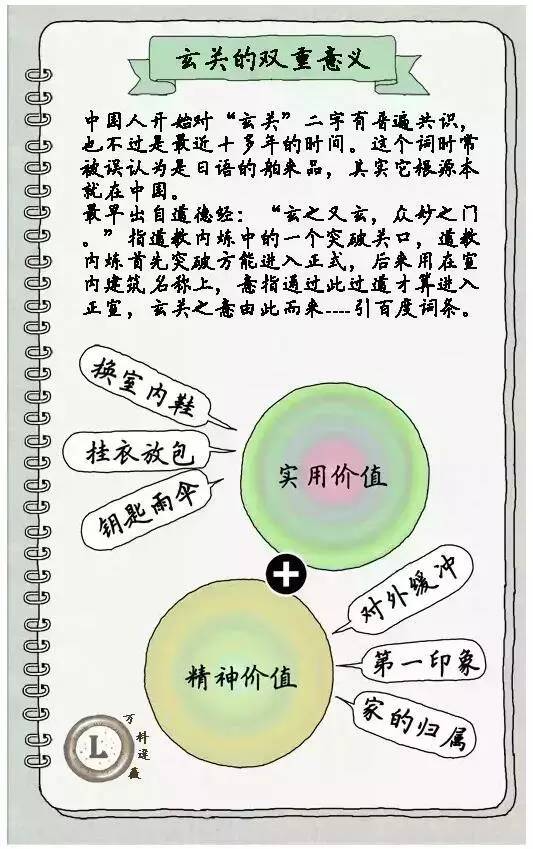 玄关的双重意义
中国人开始对“玄关”二字有普遍共识，
也不过是最近十多年的时间。这个词时常
被误认为是日语的舶来品，其实它根源本
就在中国。
最早出自道德经：“玄之又玄，众妙之门
。”指道教内炼中的一个突破关口，道教
内炼首先突破方能进入正式，后来用在室
内建筑名称上，意指通过此过道才算进入
正室，玄关之意由此而来----引百度词条。
换室内鞋
挂衣放包
钥匙雨伞
实用价值
+
对外缓冲
第一印象
家的归属
精神价值
L
万科逯薇